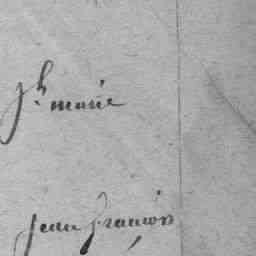 Jh marie
jean francois